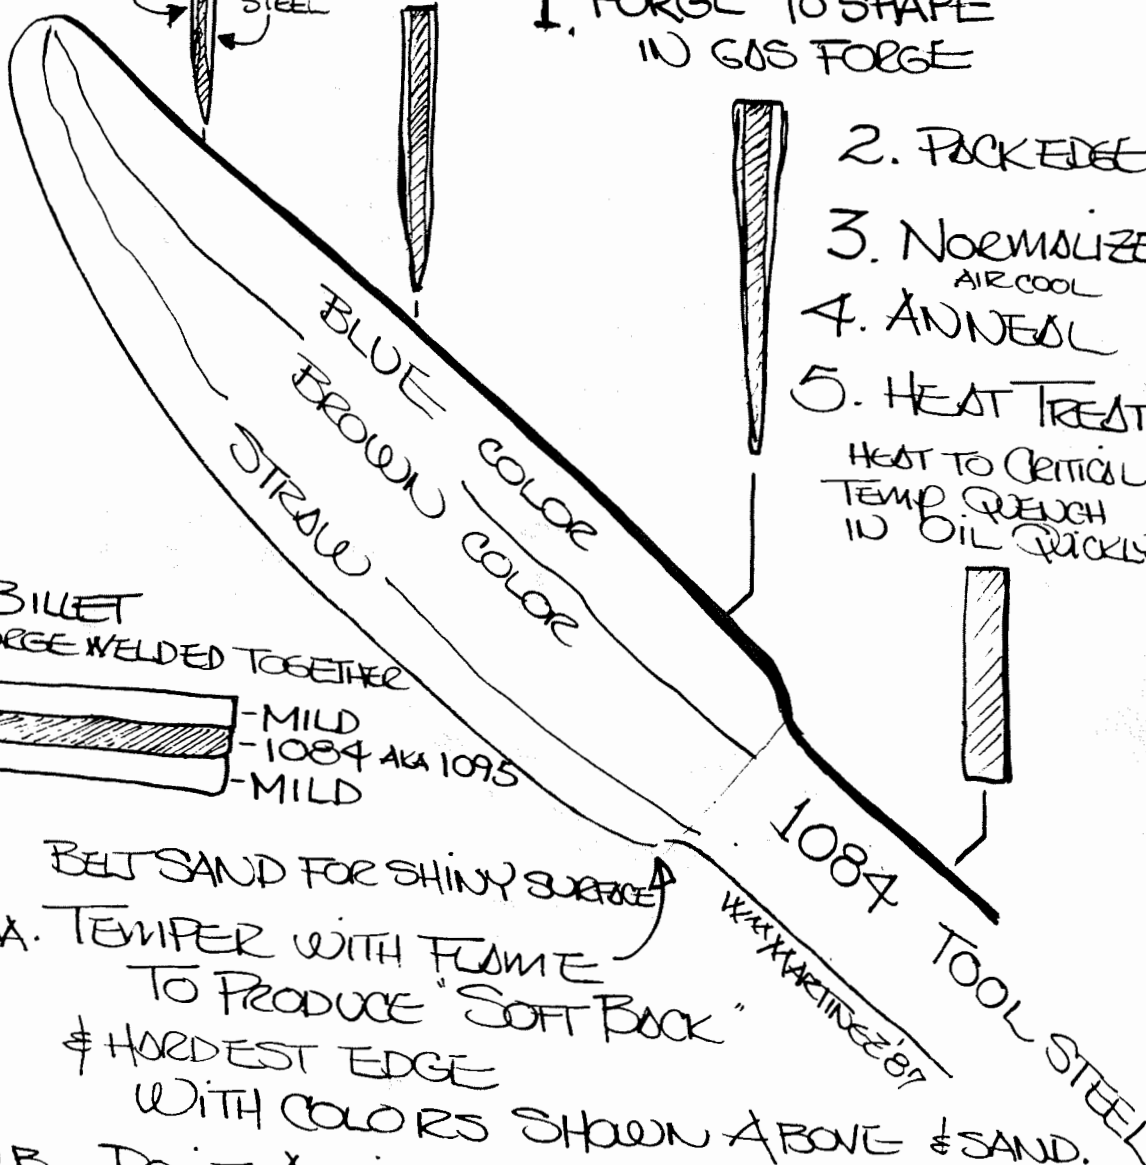 STEEL
1. FORGE TO SHAPE
IN GAS FORGE
2. PACK EDGE
3. NORMALIZE
AIR COOL
4. ANNEAL
5. HEAT TREAT
HEAT TO CRITICAL
TEMP QUENCH
IN OIL QUICKLY
BLUE COLOR
BROWN COLOR
STRAW
BILLET
RGE WELDED TOGETHER
-MILD
-1084 AKA 1095
-MILD
1084 TOOL STEEL
BELT SAND FOR SHINY SURFACE
A. TEMPER WITH FLAME
TO PRODUCE "SOFT BACK"
& HARDEST EDGE
WITH COLORS SHOWN ABOVE & SAND.
MARTINEZ '87
B.